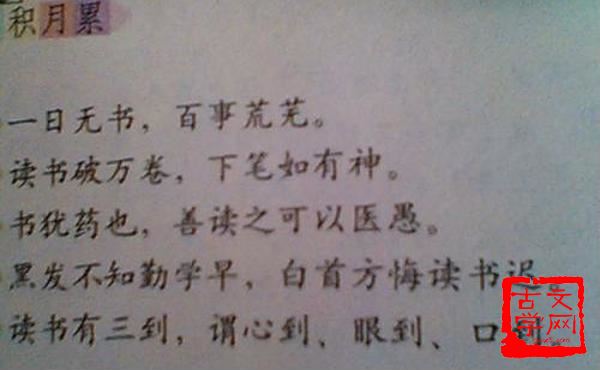 积月累
一日无书，百事荒芜。
读书破万卷，下笔如有神。
书犹药也，善读之可以医愚。
黑发不知勤学早，白首方悔读书迟。
读书有三到，谓心到、眼到、口到。
古文
学网